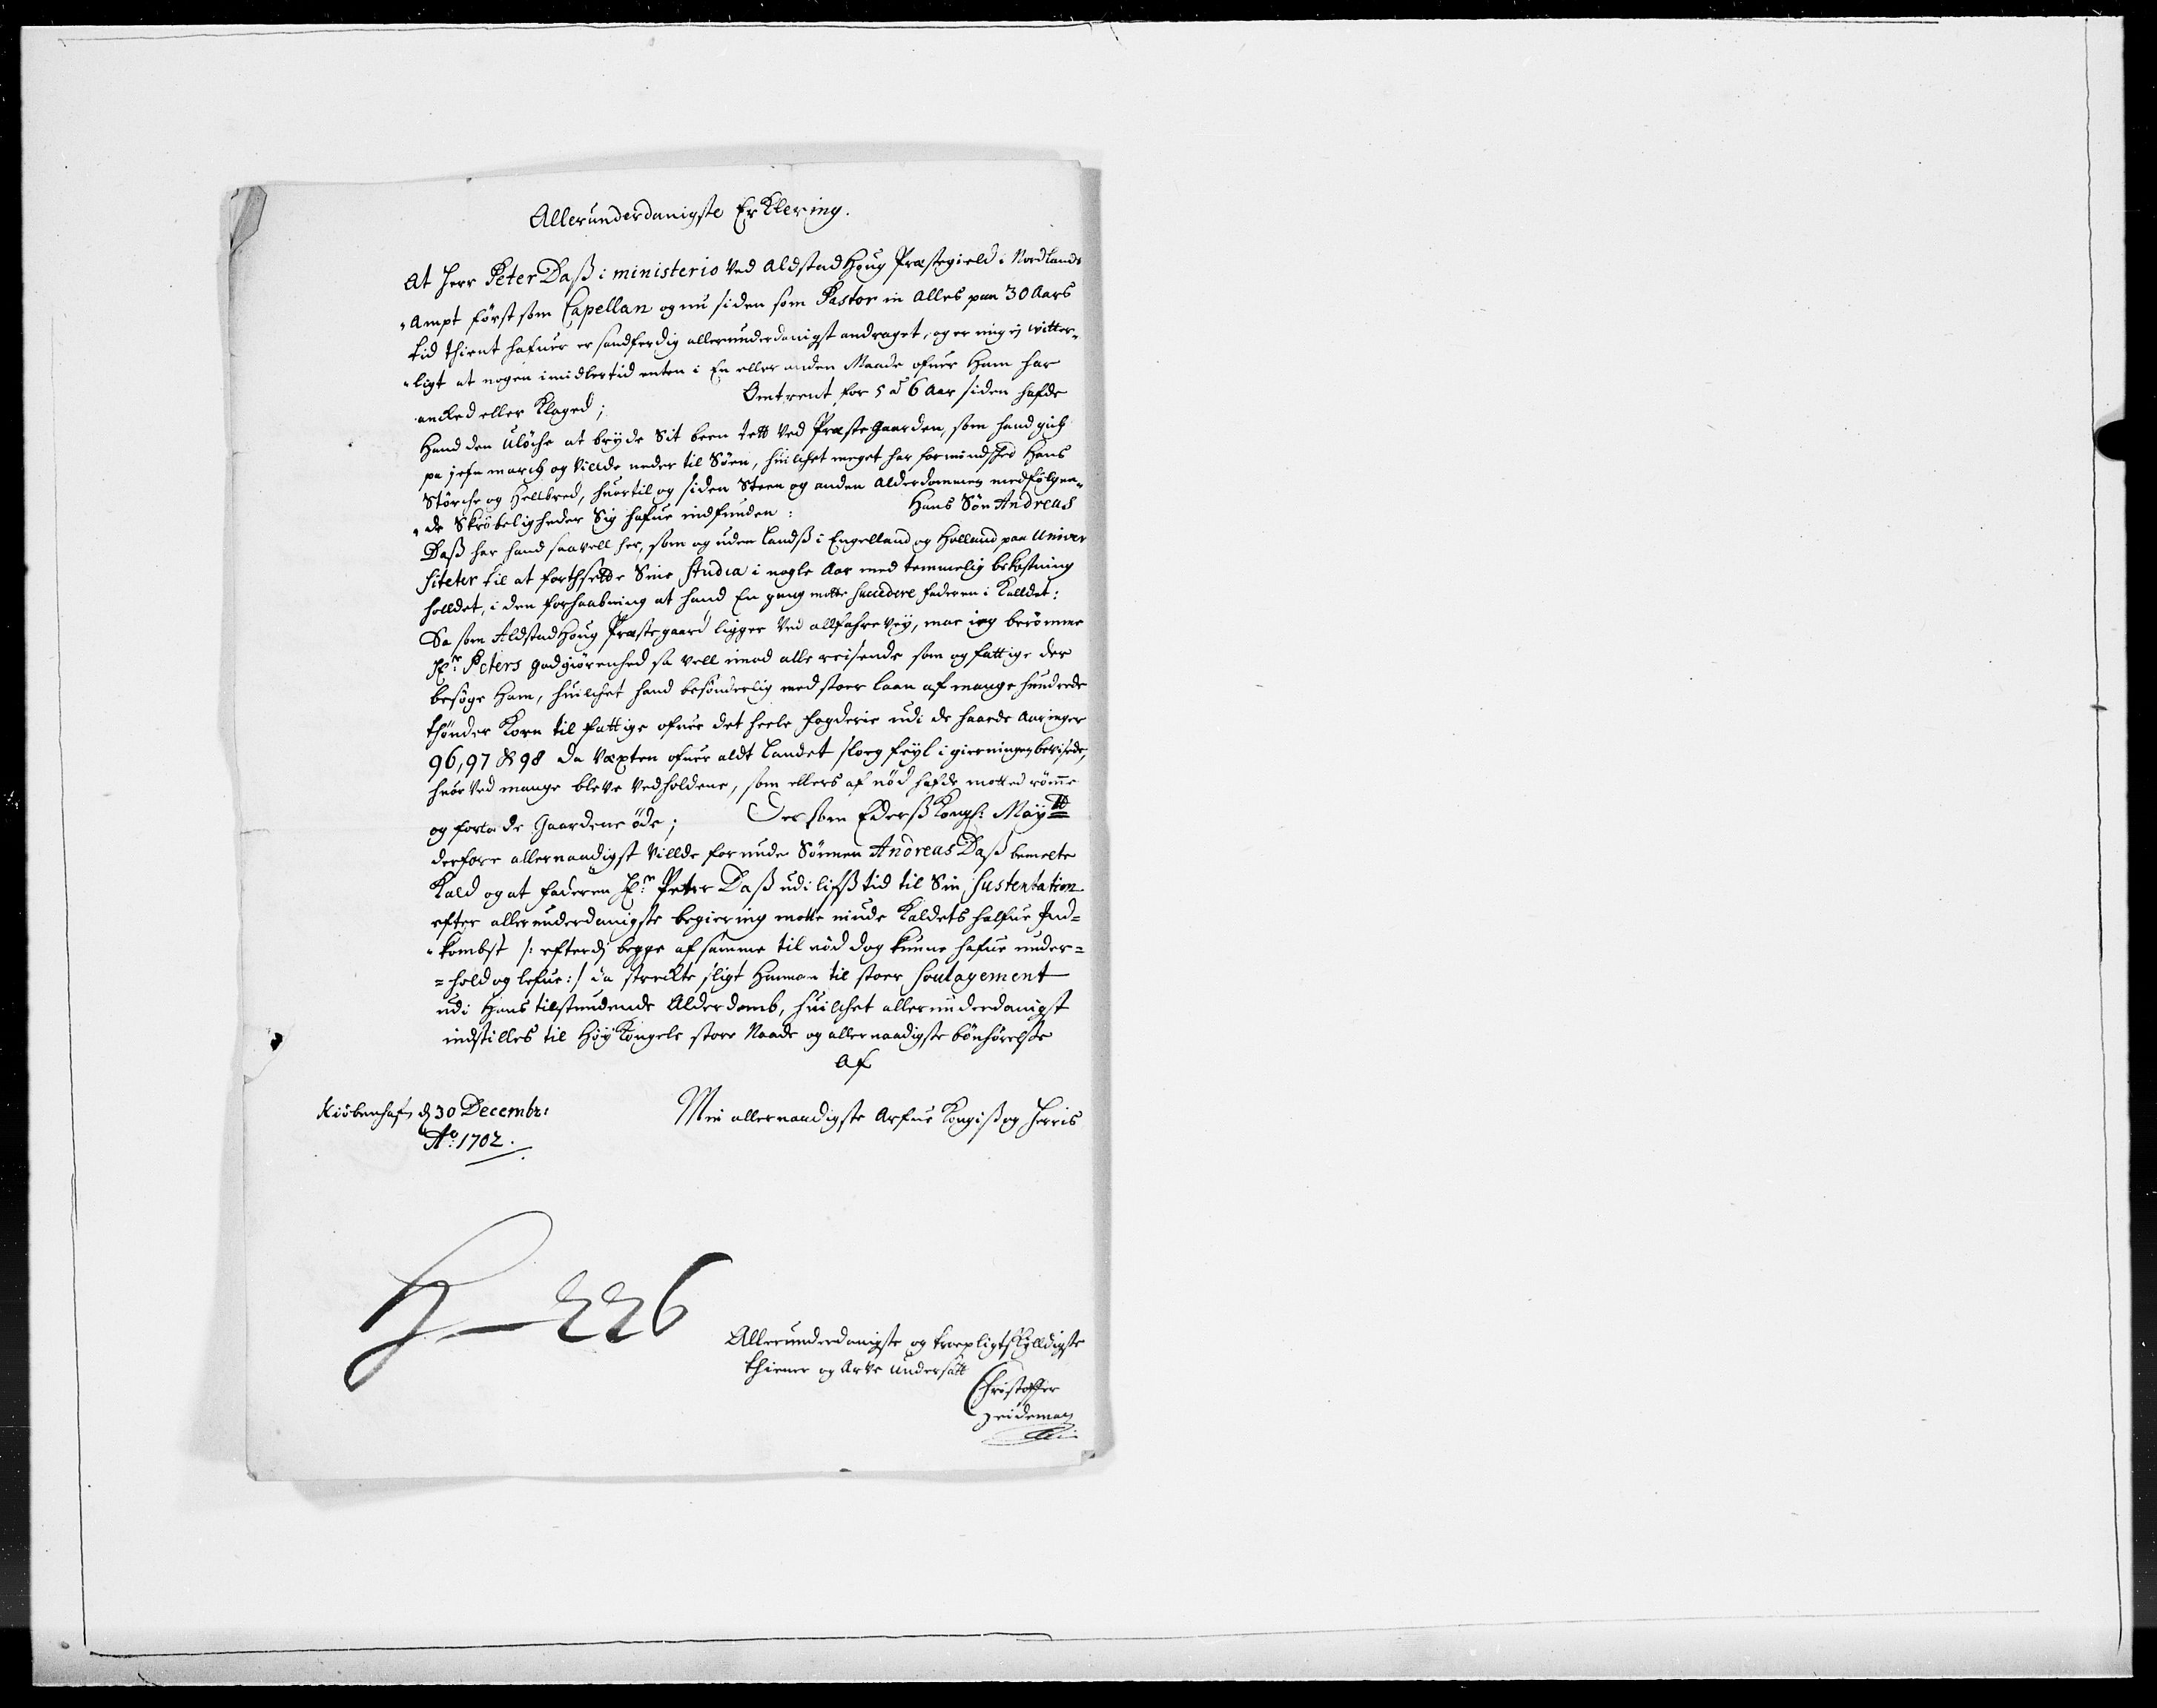 Allerunderdanigste Erklering.
At Herr Peter Daß i ministerio ved Aldstadhoug Præstegield i Nordlands
Ampt først som Capellan og nu siden som Pastor in alles paa 30 Aars
tid thient hafuer er sandferdig allerunderdanigst andraget, og er mig ej witter-
ligt at nogen imidlertid enten i En eller anden Maade ofuer Ham har
ancked eller Klaged; Omtrent for 5 a 6 Aar siden hafde
Hand den uløche at bryde Sit been tett ved Præstegaarden, som hand gich
pa jefn march og Villde neder til Søen, huilchet meget har formindsched Hans
Størche og Hellbred, huortil og siden Steen og anden Alderdommen medfølgen-
de Skrøbeligheder Sig hafue indfunden: Hans Søn Andreas
Daß har hand saavell her, som og uden Landß i Engelland og Holland paa Univer
siteter til at forthsette Sine studia i nogle Aar med temmelig bekostning
holldet, i den forhaabning at hand En gang motte succedere faderen i Kalldet:
Sa som Aldstadhoug Præstegaard ligger ved allfahrevey, maa jeg berømme
Hr. Peters godgiørenhed sa vell imod alle reisende som og fattige der
besøge Ham, huilchet hand besønderlig med stoer laan af mange hundrede
thønder Korn til fattige ofuer det heele fogderie udi de haarde Aaringer
96, 97 & 98 da Vexten ofuer aldt Landet sloeg feyl i gierningen beviisede,
huorved mange bleve vedholdene, som ellers af nød hafde motted rømme
og forlade Gaardene øde; Der som Ederß Kongl: Maytt
derfore allernaadigst Villde forunde Sønnen Andreas Daß bemelte
Kald og at faderen Hr. Peter Daß udi lifß tid til Sin Sustentation
efter allerunderdanigste begiering motte niude Kaldets halfue Ind=
kombst /: efterdj begge af samme til nød dog kunne hafue under=
=hold og lefue :/ da streckte sligt Hannem til stoer Soulagement
udi Hans tilstundende Alderdomb, huilchet allerunderdanigst
indstilles til Høy Kongele store Naade og allernaadigste bønhørelse
Af
Kiøbenhafn d 30 Decembr:
Ao: 1702.
Min allernaadigste Arfue Kongiß og Herris
226
Allerunderdanigste og troepligtskylldigste
thiener og Arve undersått
Christoffer
Heideman